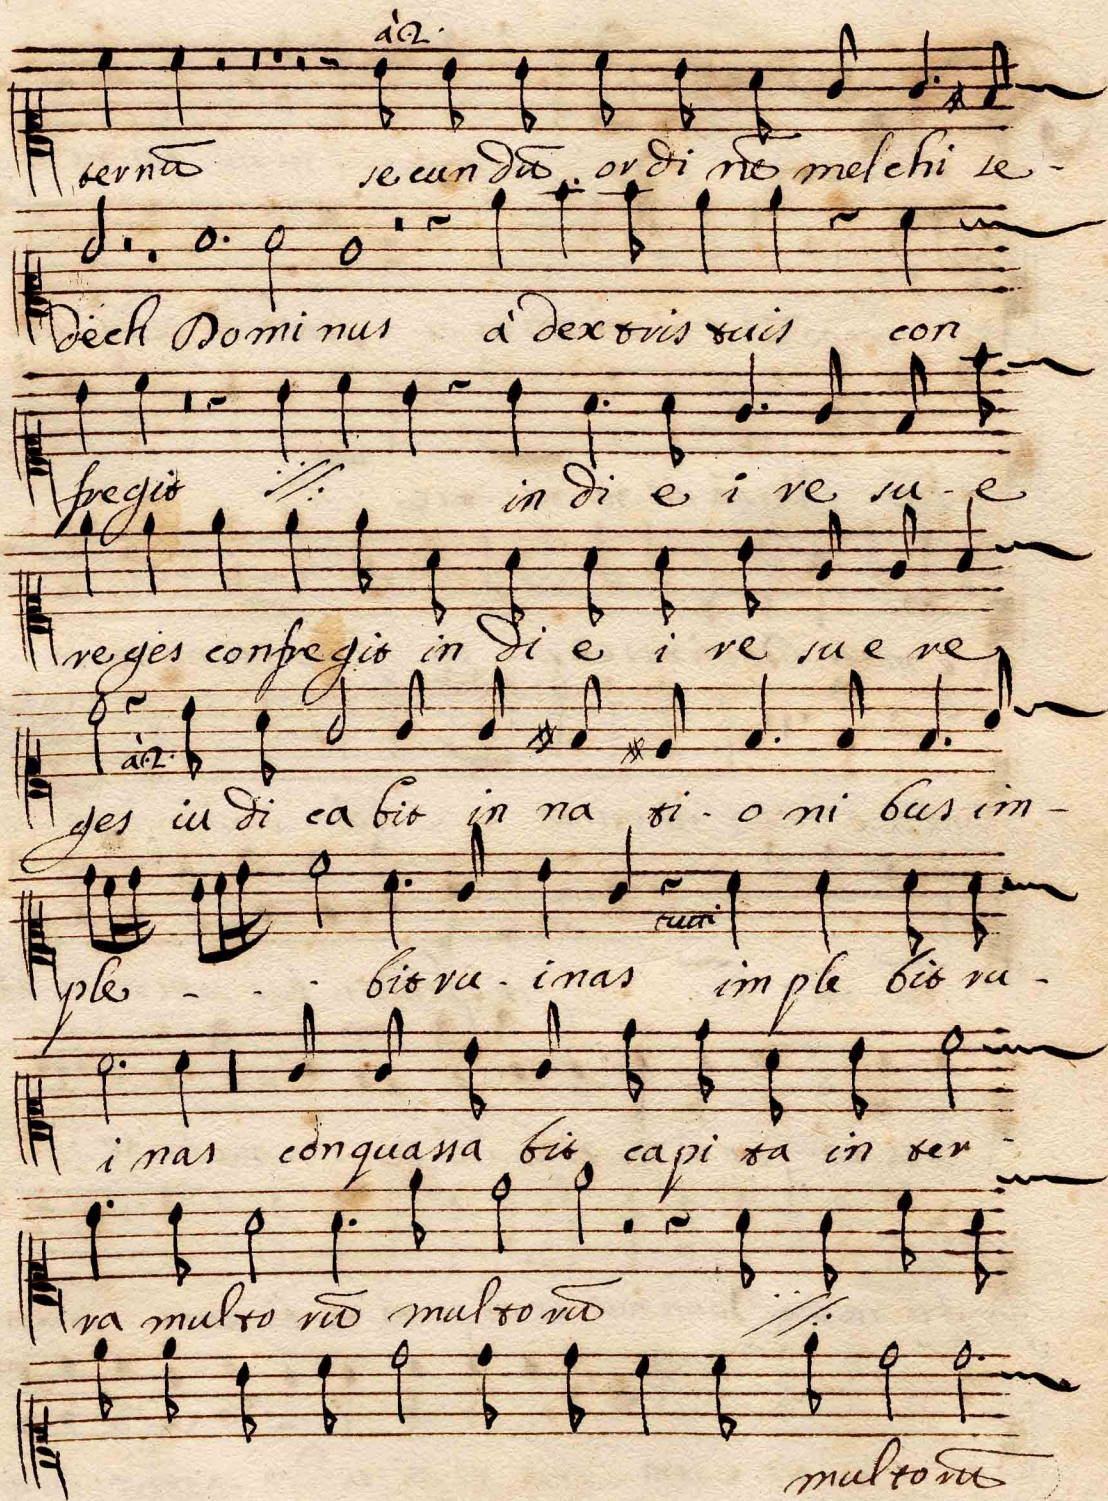 à2.
ternũ secundũ ordinẽ melchise-
dech Dominus à dextris tuis con
fregit in die ire su-e
reges confregit in die ire sue re
à2.
ges iudicabit in nati-onibus im-
tutti
ple - - - bit ru-inas implebit ru-
inas conquassabit capita in ter-
ra multorũ multorũ
multorũ